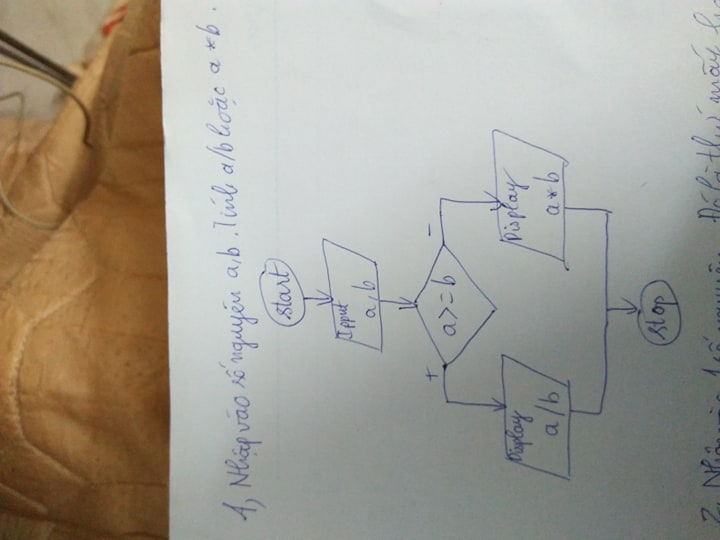 1, Nhập vào số nguyên a,b. Tính a/b hoặc a*b.
Start
Input
a,b
a>=b
+
-
Display
a/b
Display
a*b
Stop
2, Nhập vào 1 số nguyên. Đó là thứ mấy